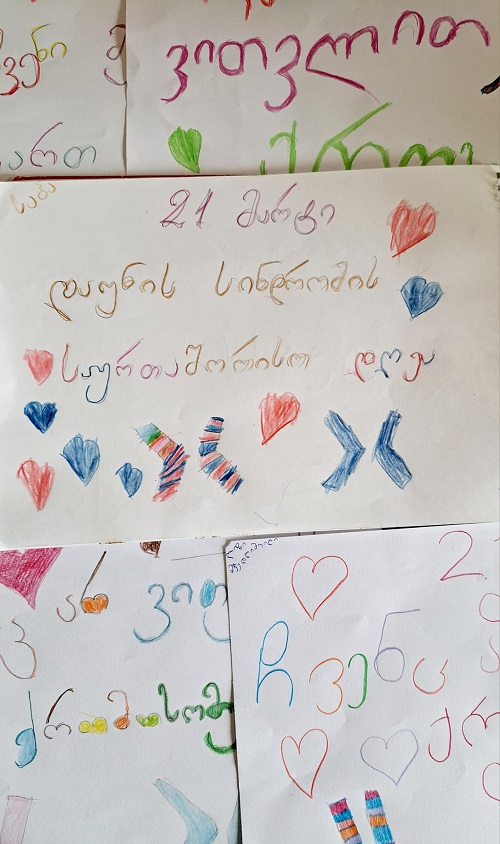 ვენი
ართ
ვითვლით
ქრომ
საბა
21 მარტი
დაუნის სინდრომის
საერთაშორისო დღე
არ ვიფ
ქრომოსომ
2
ჩვენც
ქრ